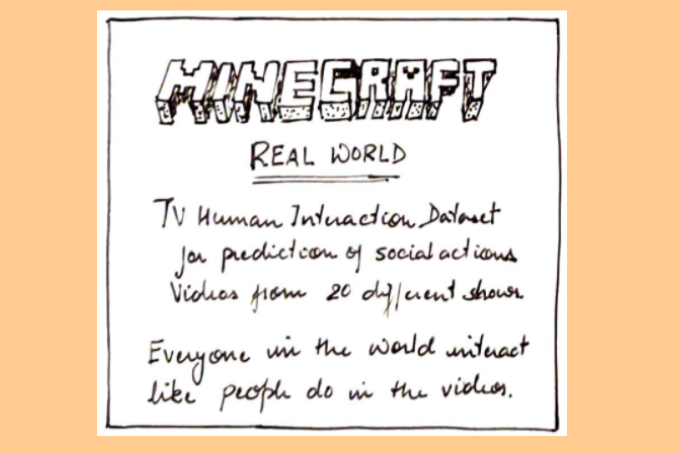 MINECRAFT
REAL WORLD
TV Human Interaction Dataset
for prediction of social actions
Videos from 20 different shows.
Everyone in the world interact
like people do in the videos.